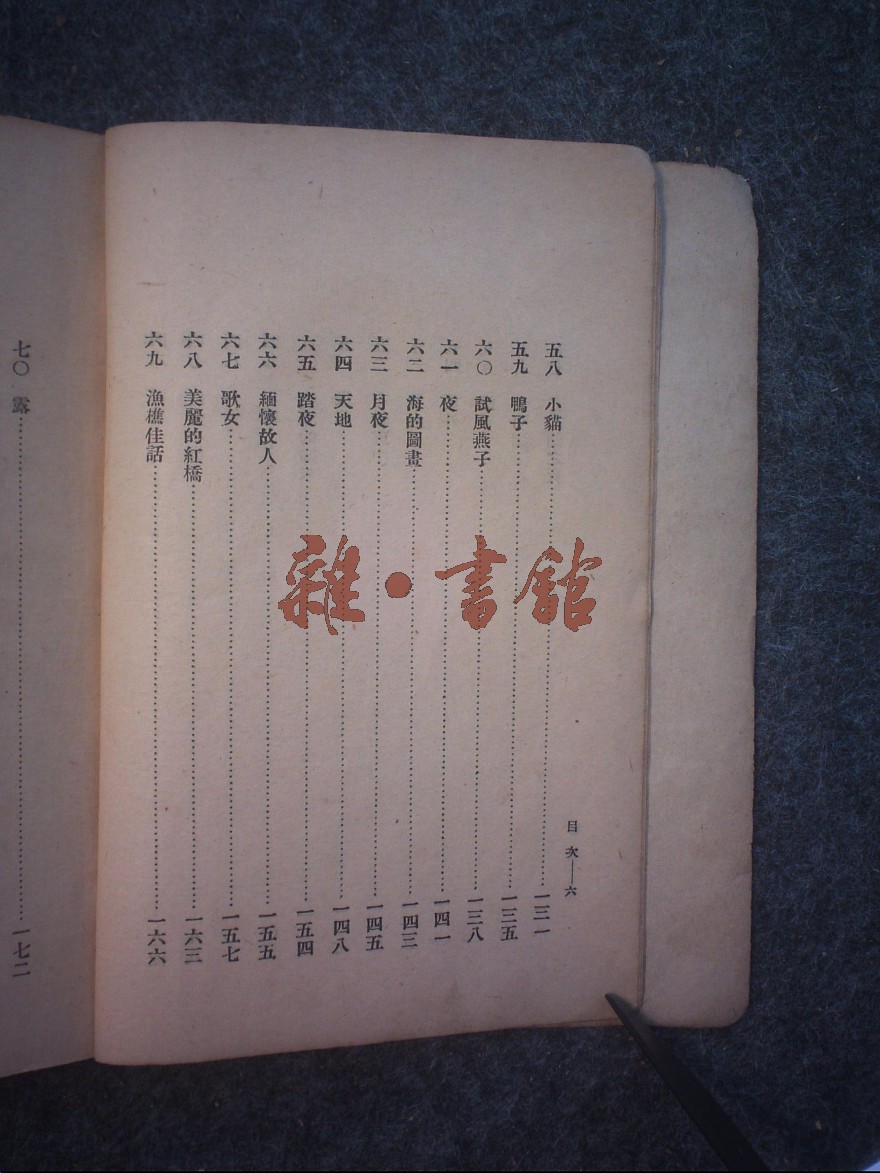 目次——六
五八 小貓……一三一
五九 鴨子……一三五
六〇 試風燕子……一三八
六一 夜……一四一
六二 海的圖畫……一四三
六三 月夜……一四五
六四 天地……一四八
六五 踏夜……一五四
六六 緬懷故人……一五五
六七 歌女……一五七
六八 美麗的紅橋……一六三
六九 漁樵佳話……一六六
七〇 露……一七二
雜·書館